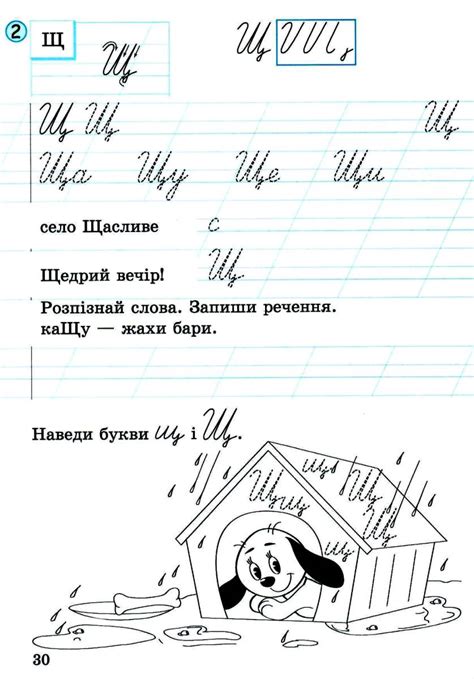 2 Щ Щ Щ
Щ Щ Щ
Ща Щу Ще Щи
село Щасливе с
Щедрий вечір! Щ
Розпізнай слова. Запиши речення.
каЩу — жахи бари.
Наведи букви щ і Щ.
щ Щ
Щ щ щ Щ
щ
30